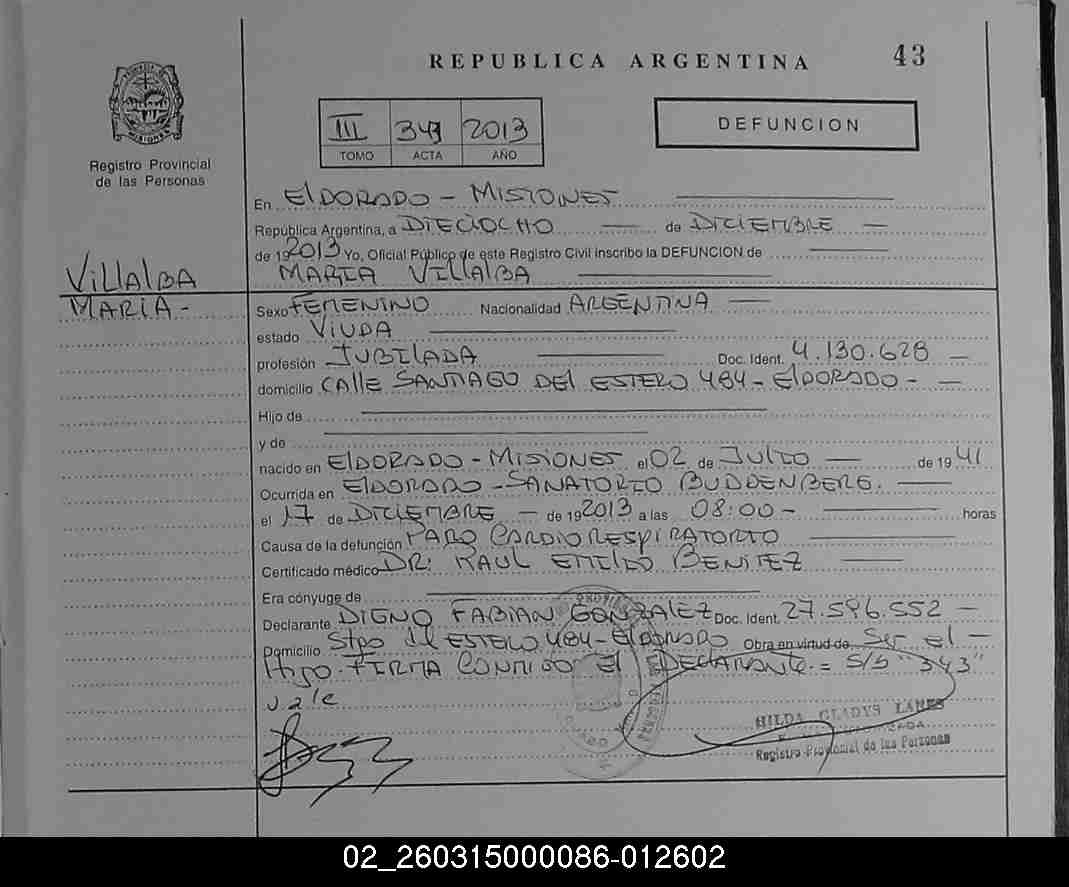 REPUBLICA ARGENTINA
43
III 343 2013
TOMO ACTA AÑO
DEFUNCION
Registro Provincial
de las Personas
En ElDORADO - MISIONES
República Argentina, a DIECIOCHO de DICIEMBRE
de 19 2013 Yo, Oficial Público de este Registro Civil inscribo la DEFUNCION de
MARIA VILLALBA
VILLALBA
MARIA -
Sexo FEMENINO Nacionalidad ARGENTINA
estado VIUDA
profesión JUBILADA Doc. Ident. 4.130.628 -
domicilio CAllE SANTIAGO DEl ESTERO 484 - ElDORADO - -
Hijo de
y de
nacido en ElDORADO - MISIONES el 02 de JULIO de 19 41
Ocurrida en ElDORADO - SANATORIO BUDDENBERG.
el 17 de DICIEMBRE - de 19 2013 a las 08:00 - horas
Causa de la defunción PARO CARDIORESPIRATORIO
Certificado médico DR: RAUL EMILIO BENITEZ
Era cónyuge de
Declarante DIGNO FABIAN GONZALEZ Doc. Ident. 27.596.552 -
Domicilio Stgo del ESTERO 484 - ElDORADO Obra en virtud de Ser el -
Hijo. FIRMA CONMIGO El DEClARANTE = S/b "343"
vale
HILDA GLADYS
Registro Provincial de las Personas
02_260315000086-012602